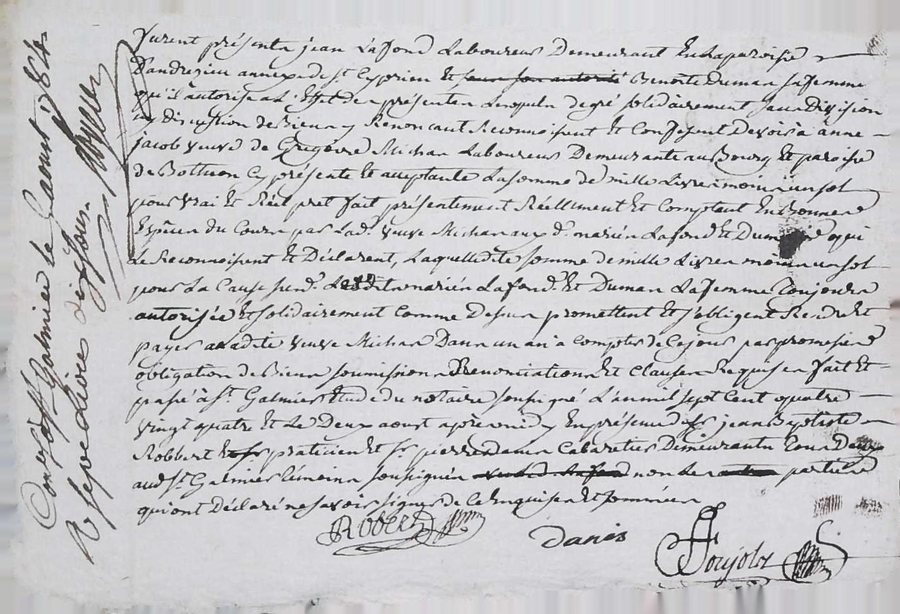 furent présents jean Lafond Laboureur Demeurant En La paroisse
D'andrezieu annexe de St Cyprien Et Benoite Duman sa femme
qu'il autorise a L'Effet des présentes Lesquels de gré solidairement sans Division
ny discution de Biens y Renoncant Reconnoissent Et Confessent Devoir à anne
jacob veuve de Grégoire Michas Laboureur Demeurante au Bourg Et paroisse
de Bothéon Cy présente Et acceptante La somme de mille Livres moins un sol
pour vrai Et Réel pret fait présentement Réellement Et Comptant En Bonnes
Espèces du Cours par Lad. veuve Michas aux d. mariés Lafond Et Duman qui
Le Reconnoissent Et Déclarent, Laquelle dite somme de mille Livres moins un sol
pour La Cause susd. Lesdits mariés Lafond Et Duman La femme toujours
autorisée Et solidairement Comme dessus promettent Et s'obligent Rendre Et
payer a Ladite veuve Michas Dans un an a Compter de Ce jour par promesse
obligation de Biens soumissions Renonciations Et Clauses Requises fait Et
passé à St Galmier Etude du notaire soussigné L'an mil sept Cent quatre
vingt quatre Et Le Deux aoust après midy En présence de sr jean Baptiste
Robbert praticien Et sr pierre Danis Cabaretier Demeurants tous Deux
aud. St Galmier témoins soussignés non Les parties
qui ont Déclaré ne savoir signer de Ce Enquises Et sommées
Robert
Danis
Con. à St Galmier le 6 aout 1784
R. sept Livres dix sous